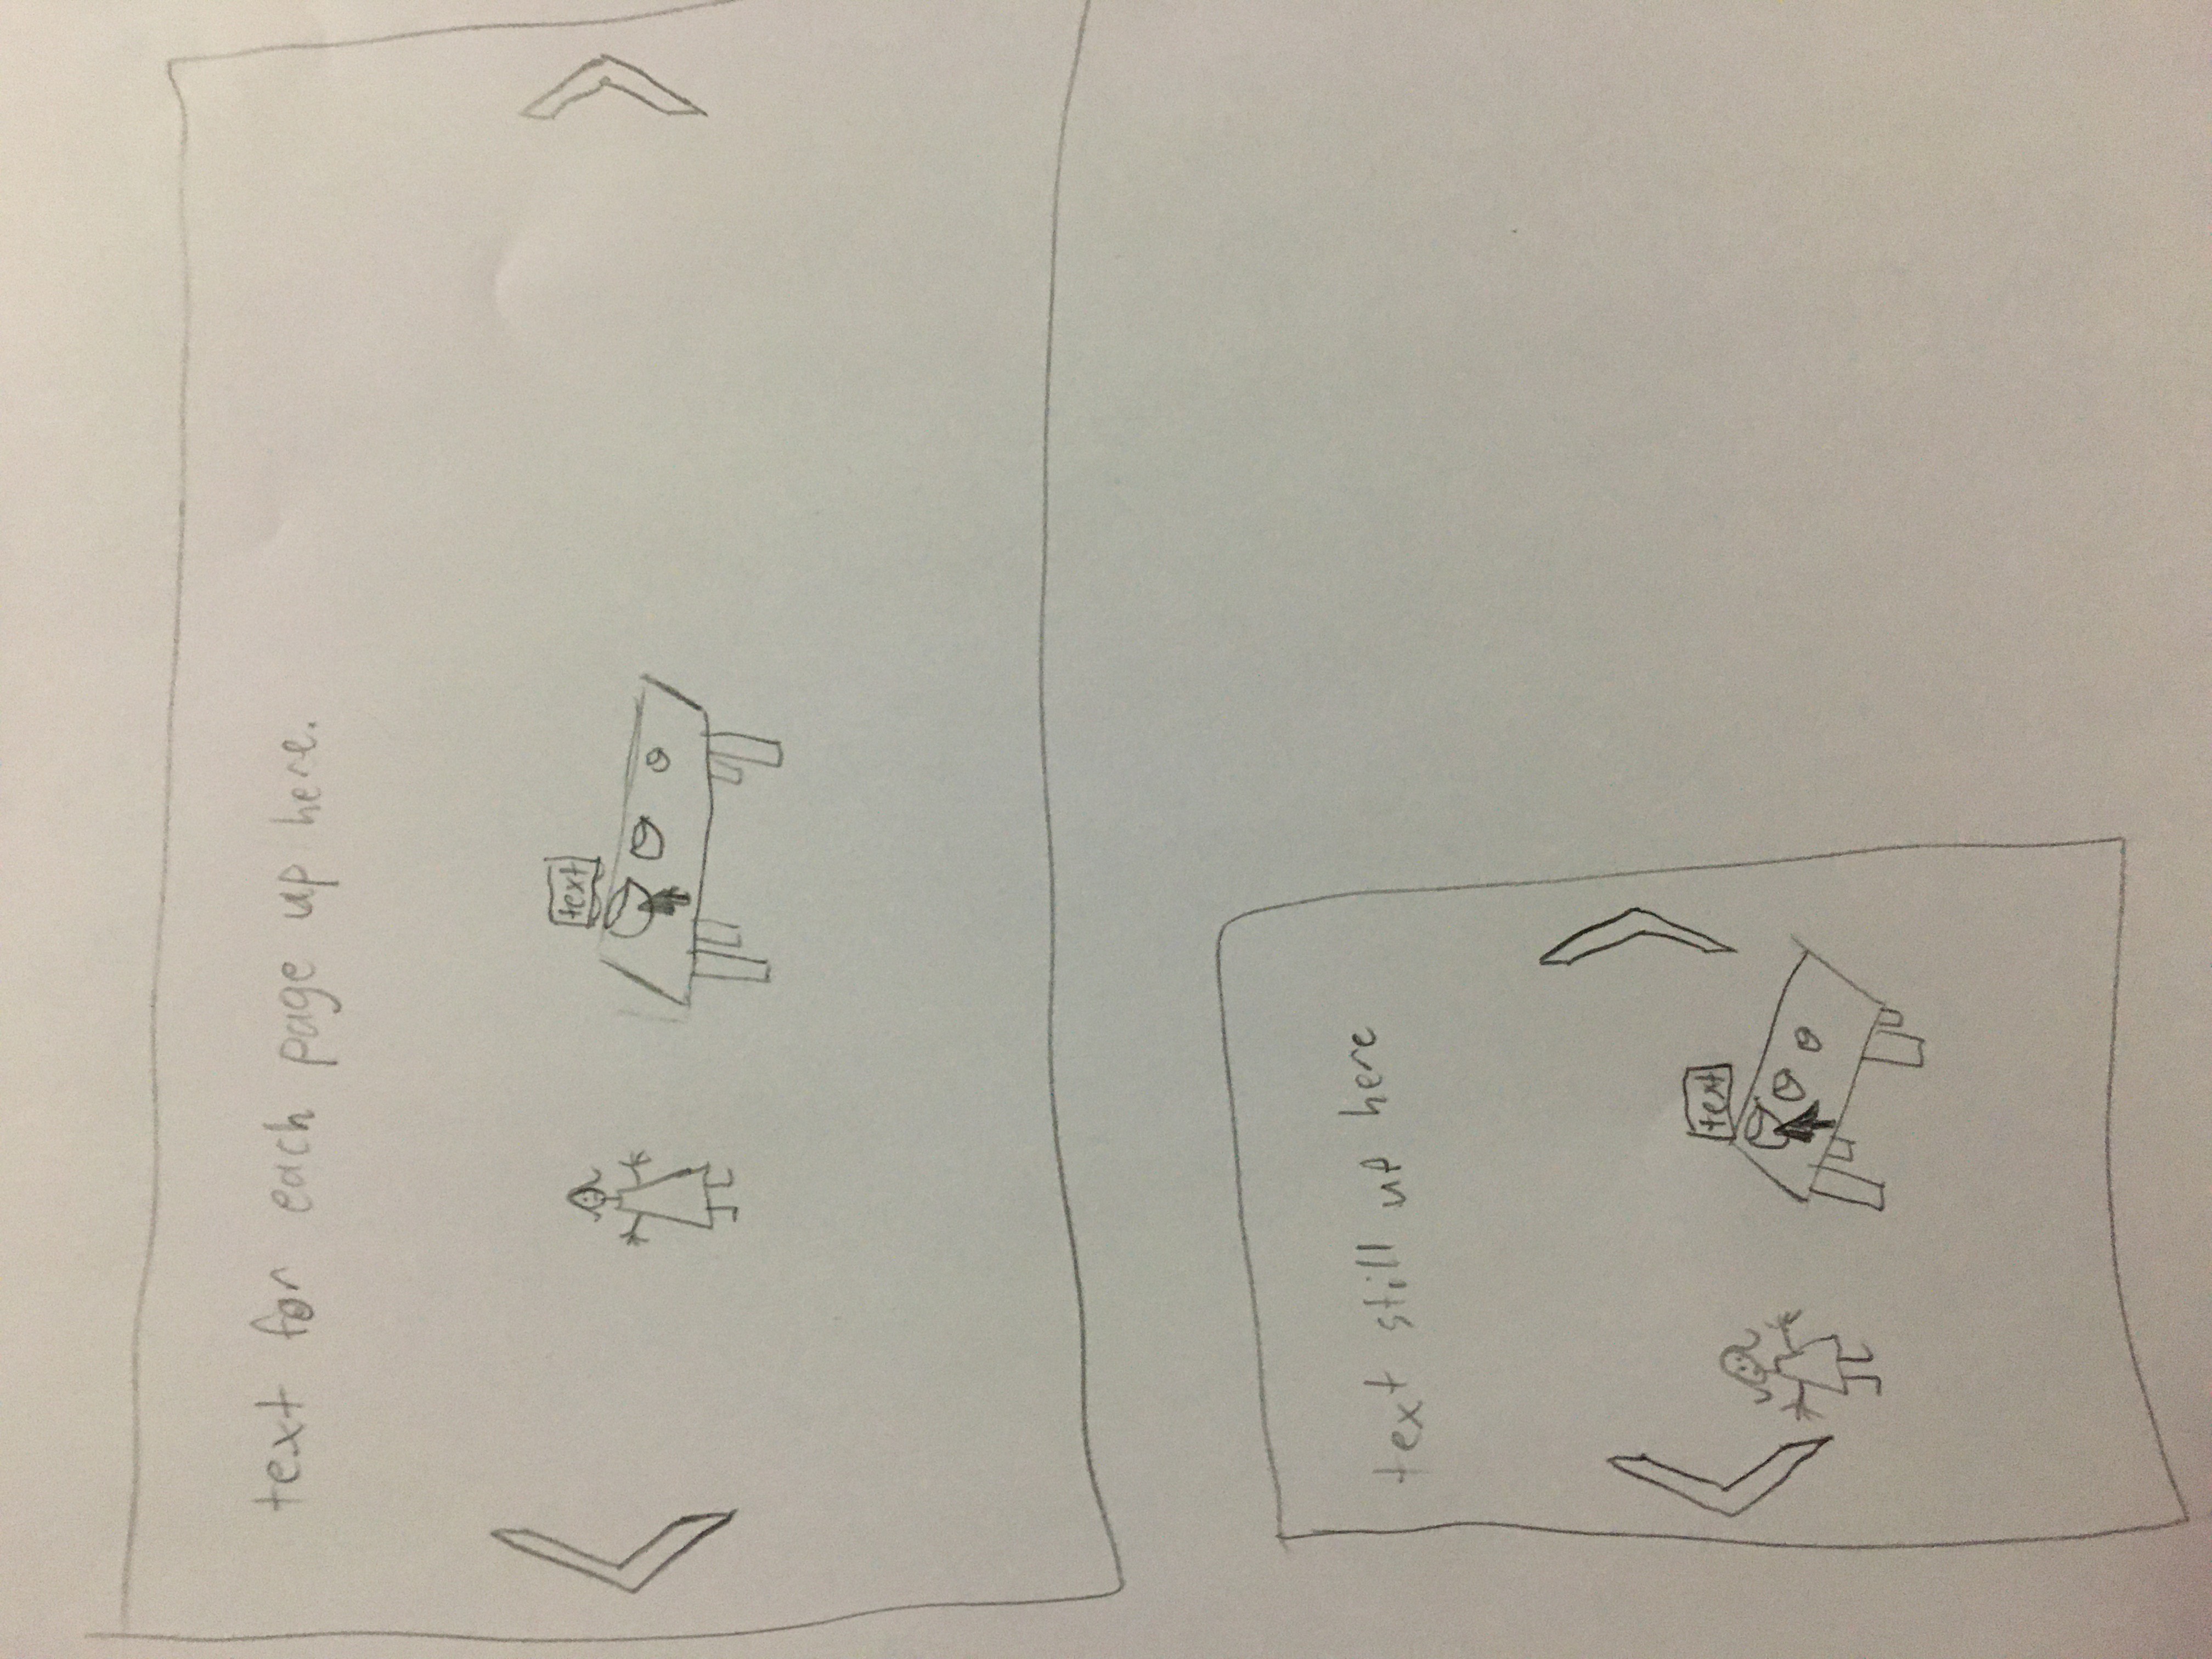 text for each page up here.
text
text still up here
text